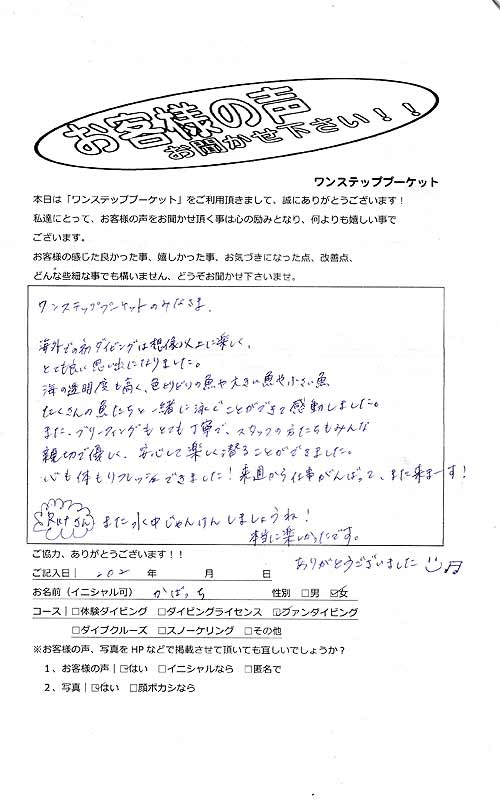 お客様の声
お聞かせ下さい！！
ワンステッププーケット
本日は「ワンステッププーケット」をご利用頂きまして、誠にありがとうございます！
私達にとって、お客様の声をお聞かせ頂く事は心の励みとなり、何よりも嬉しい事で
ございます。
お客様の感じた良かった事、嬉しかった事、お気づきになった点、改善点、
どんな些細な事でも構いません、どうぞお聞かせ下さいませ。
ワンステッププーケットのみなさま
海外での初ダイビングは想像以上に楽しく、
とても良い思い出になりました。
海の透明度も高く、色とりどりの魚や大きい魚や小さい魚
たくさんの魚たちと一緒に泳ぐことができて感動しました。
また、ブリーフィングもとても丁寧で、スタッフの方たちもみんな
親切で優しく、安心して楽しく潜ることができました。
心も体もリフレッシュできました！来週から仕事がんばって、また来まーす！
さん また水中じゃんけんしましょうね！
本当に楽しかったです。
ありがとうございました
ご協力、ありがとうございます！！
ご記入日｜ 202 年 月 日
お名前（イニシャル可） かばっち 性別 □男 ☑女
コース｜□体験ダイビング □ダイビングライセンス ☑ファンダイビング
□ダイブクルーズ □スノーケリング □その他
※お客様の声、写真をHPなどで掲載させて頂いても宜しいでしょうか？
1、お客様の声｜☑はい □イニシャルなら □匿名で
2、写真｜☑はい □顔ボカシなら